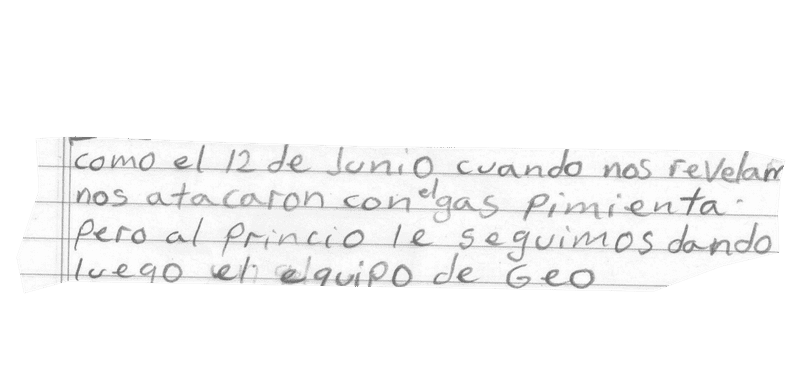 como el 12 de Junio, cuando nos revelam
nos atacaron con el gas pimienta.
Pero al princio le seguimos dando
luego el elquipo de Geo